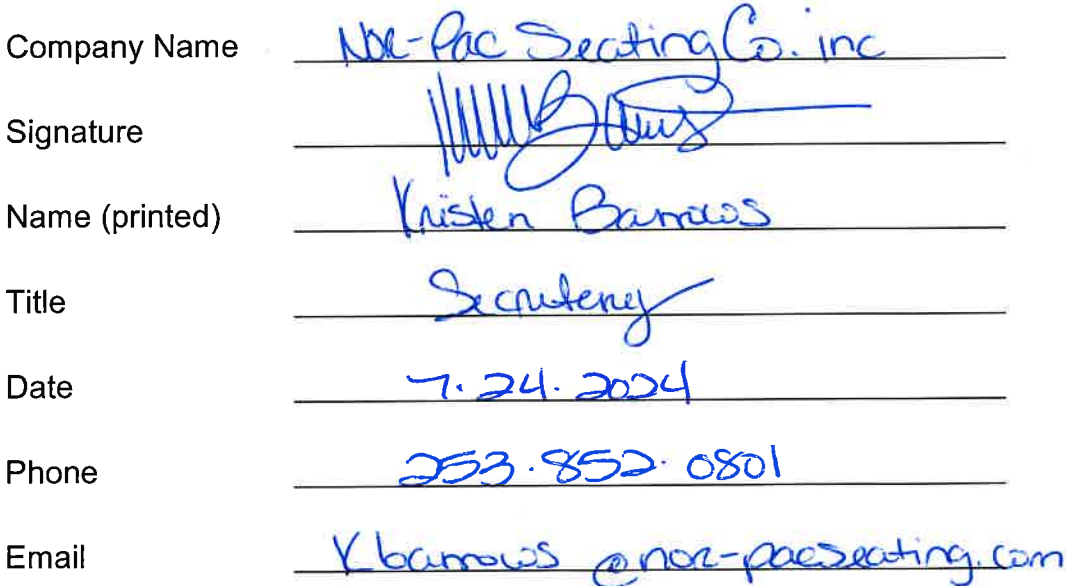 Company Name Nor-Pac Seating Co. inc
Signature
Name (printed) Kristen Barrows
Title Secretery
Date 7.24.2024
Phone 253.852.0801
Email Kbarrows@nor-pacseating.com